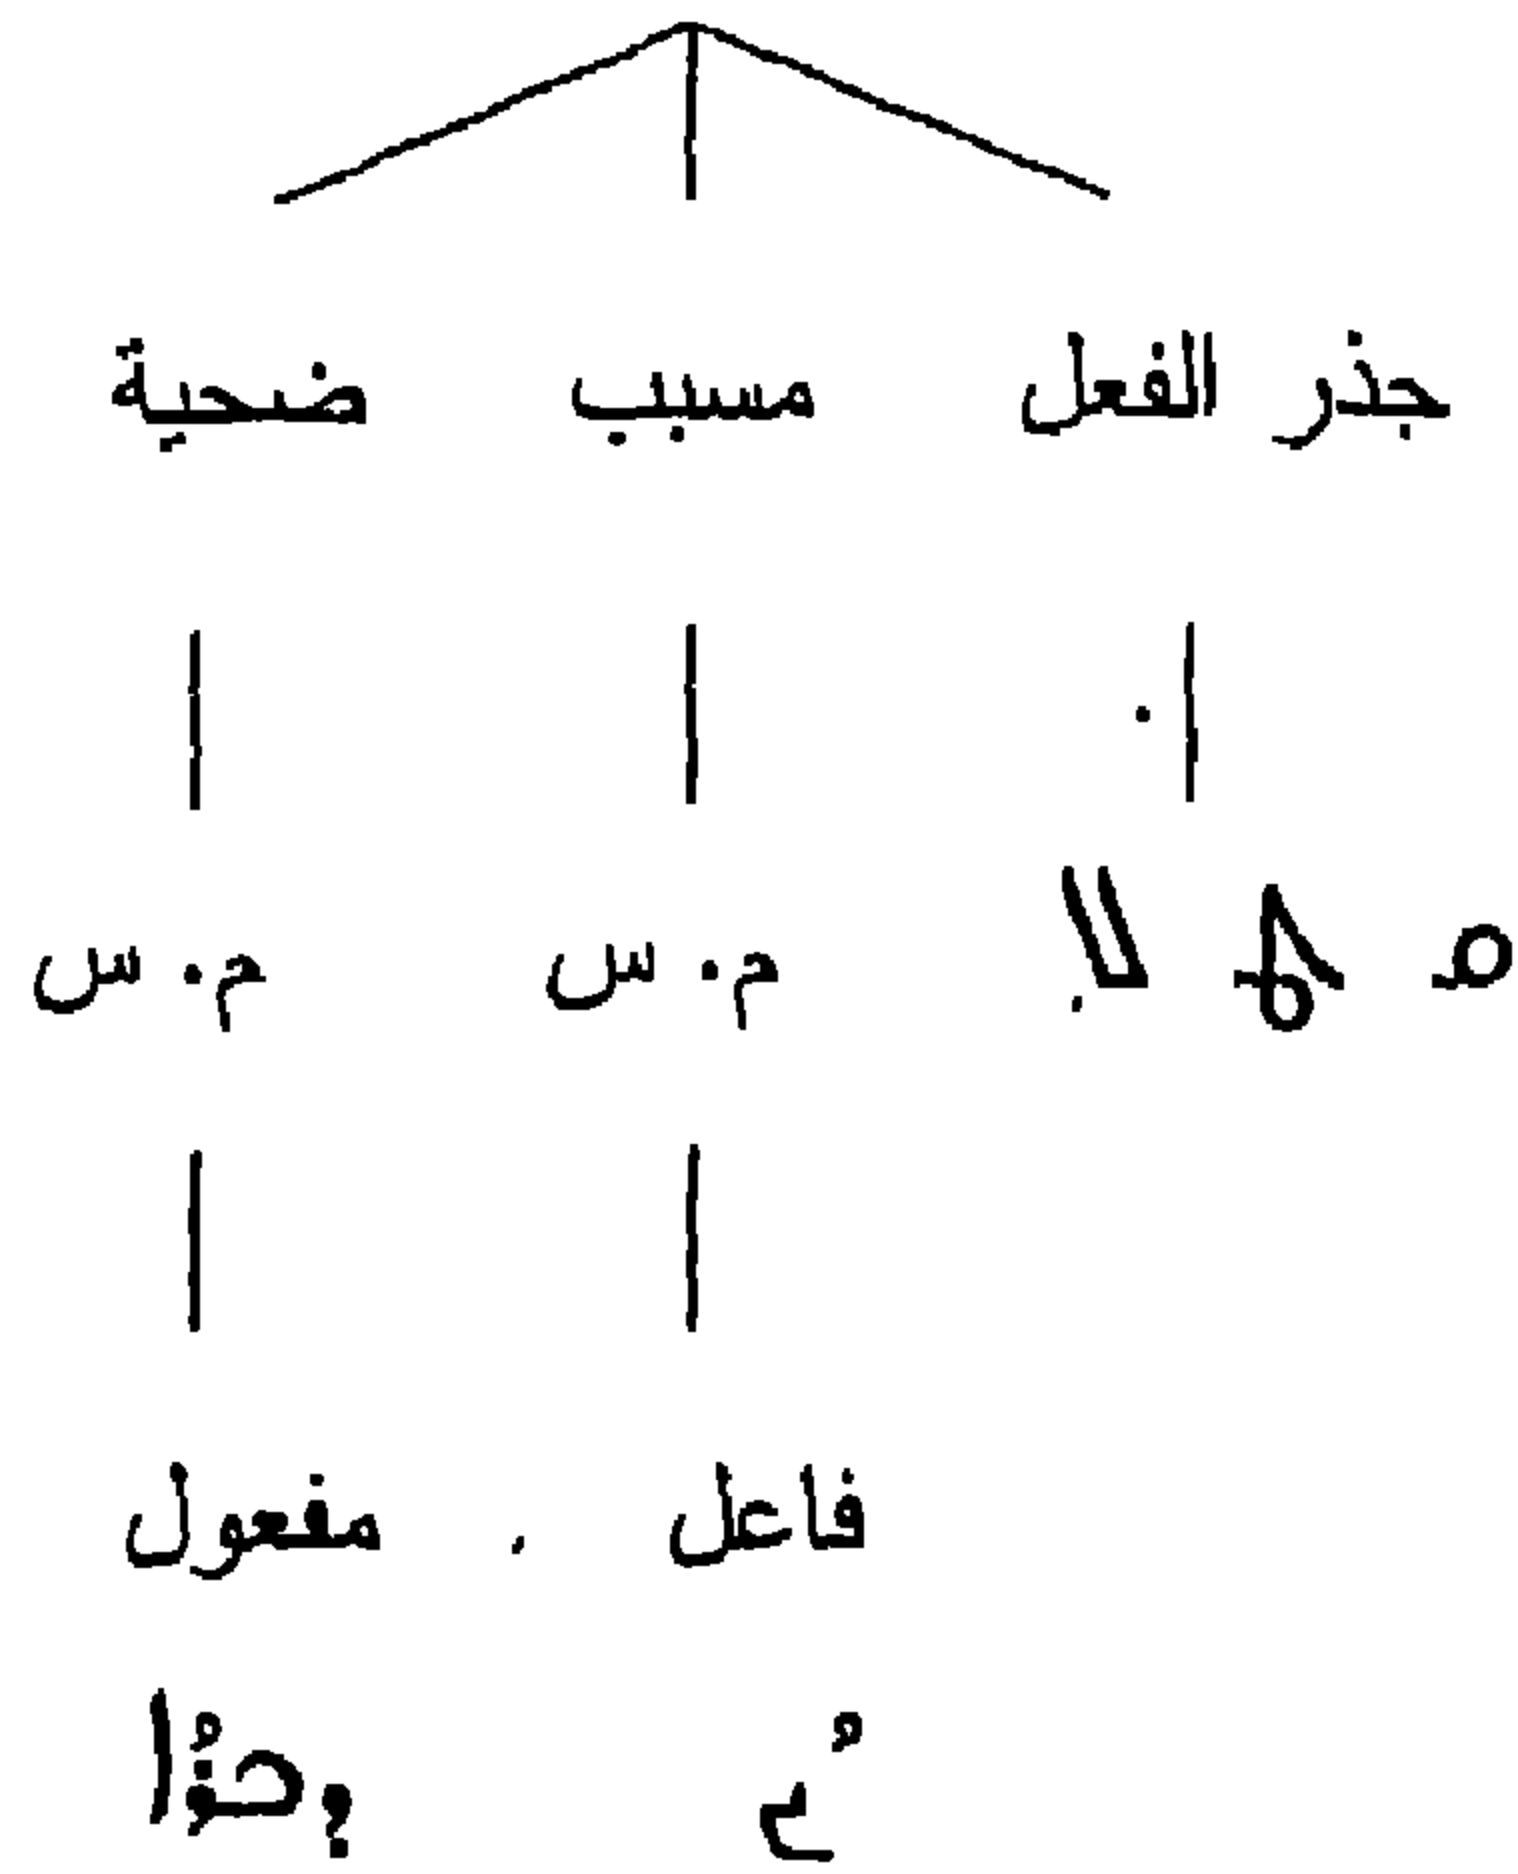 جذر الفعل مسبب ضحية
ܩ ܛ ܠ م.س م.س
فاعل مفعول